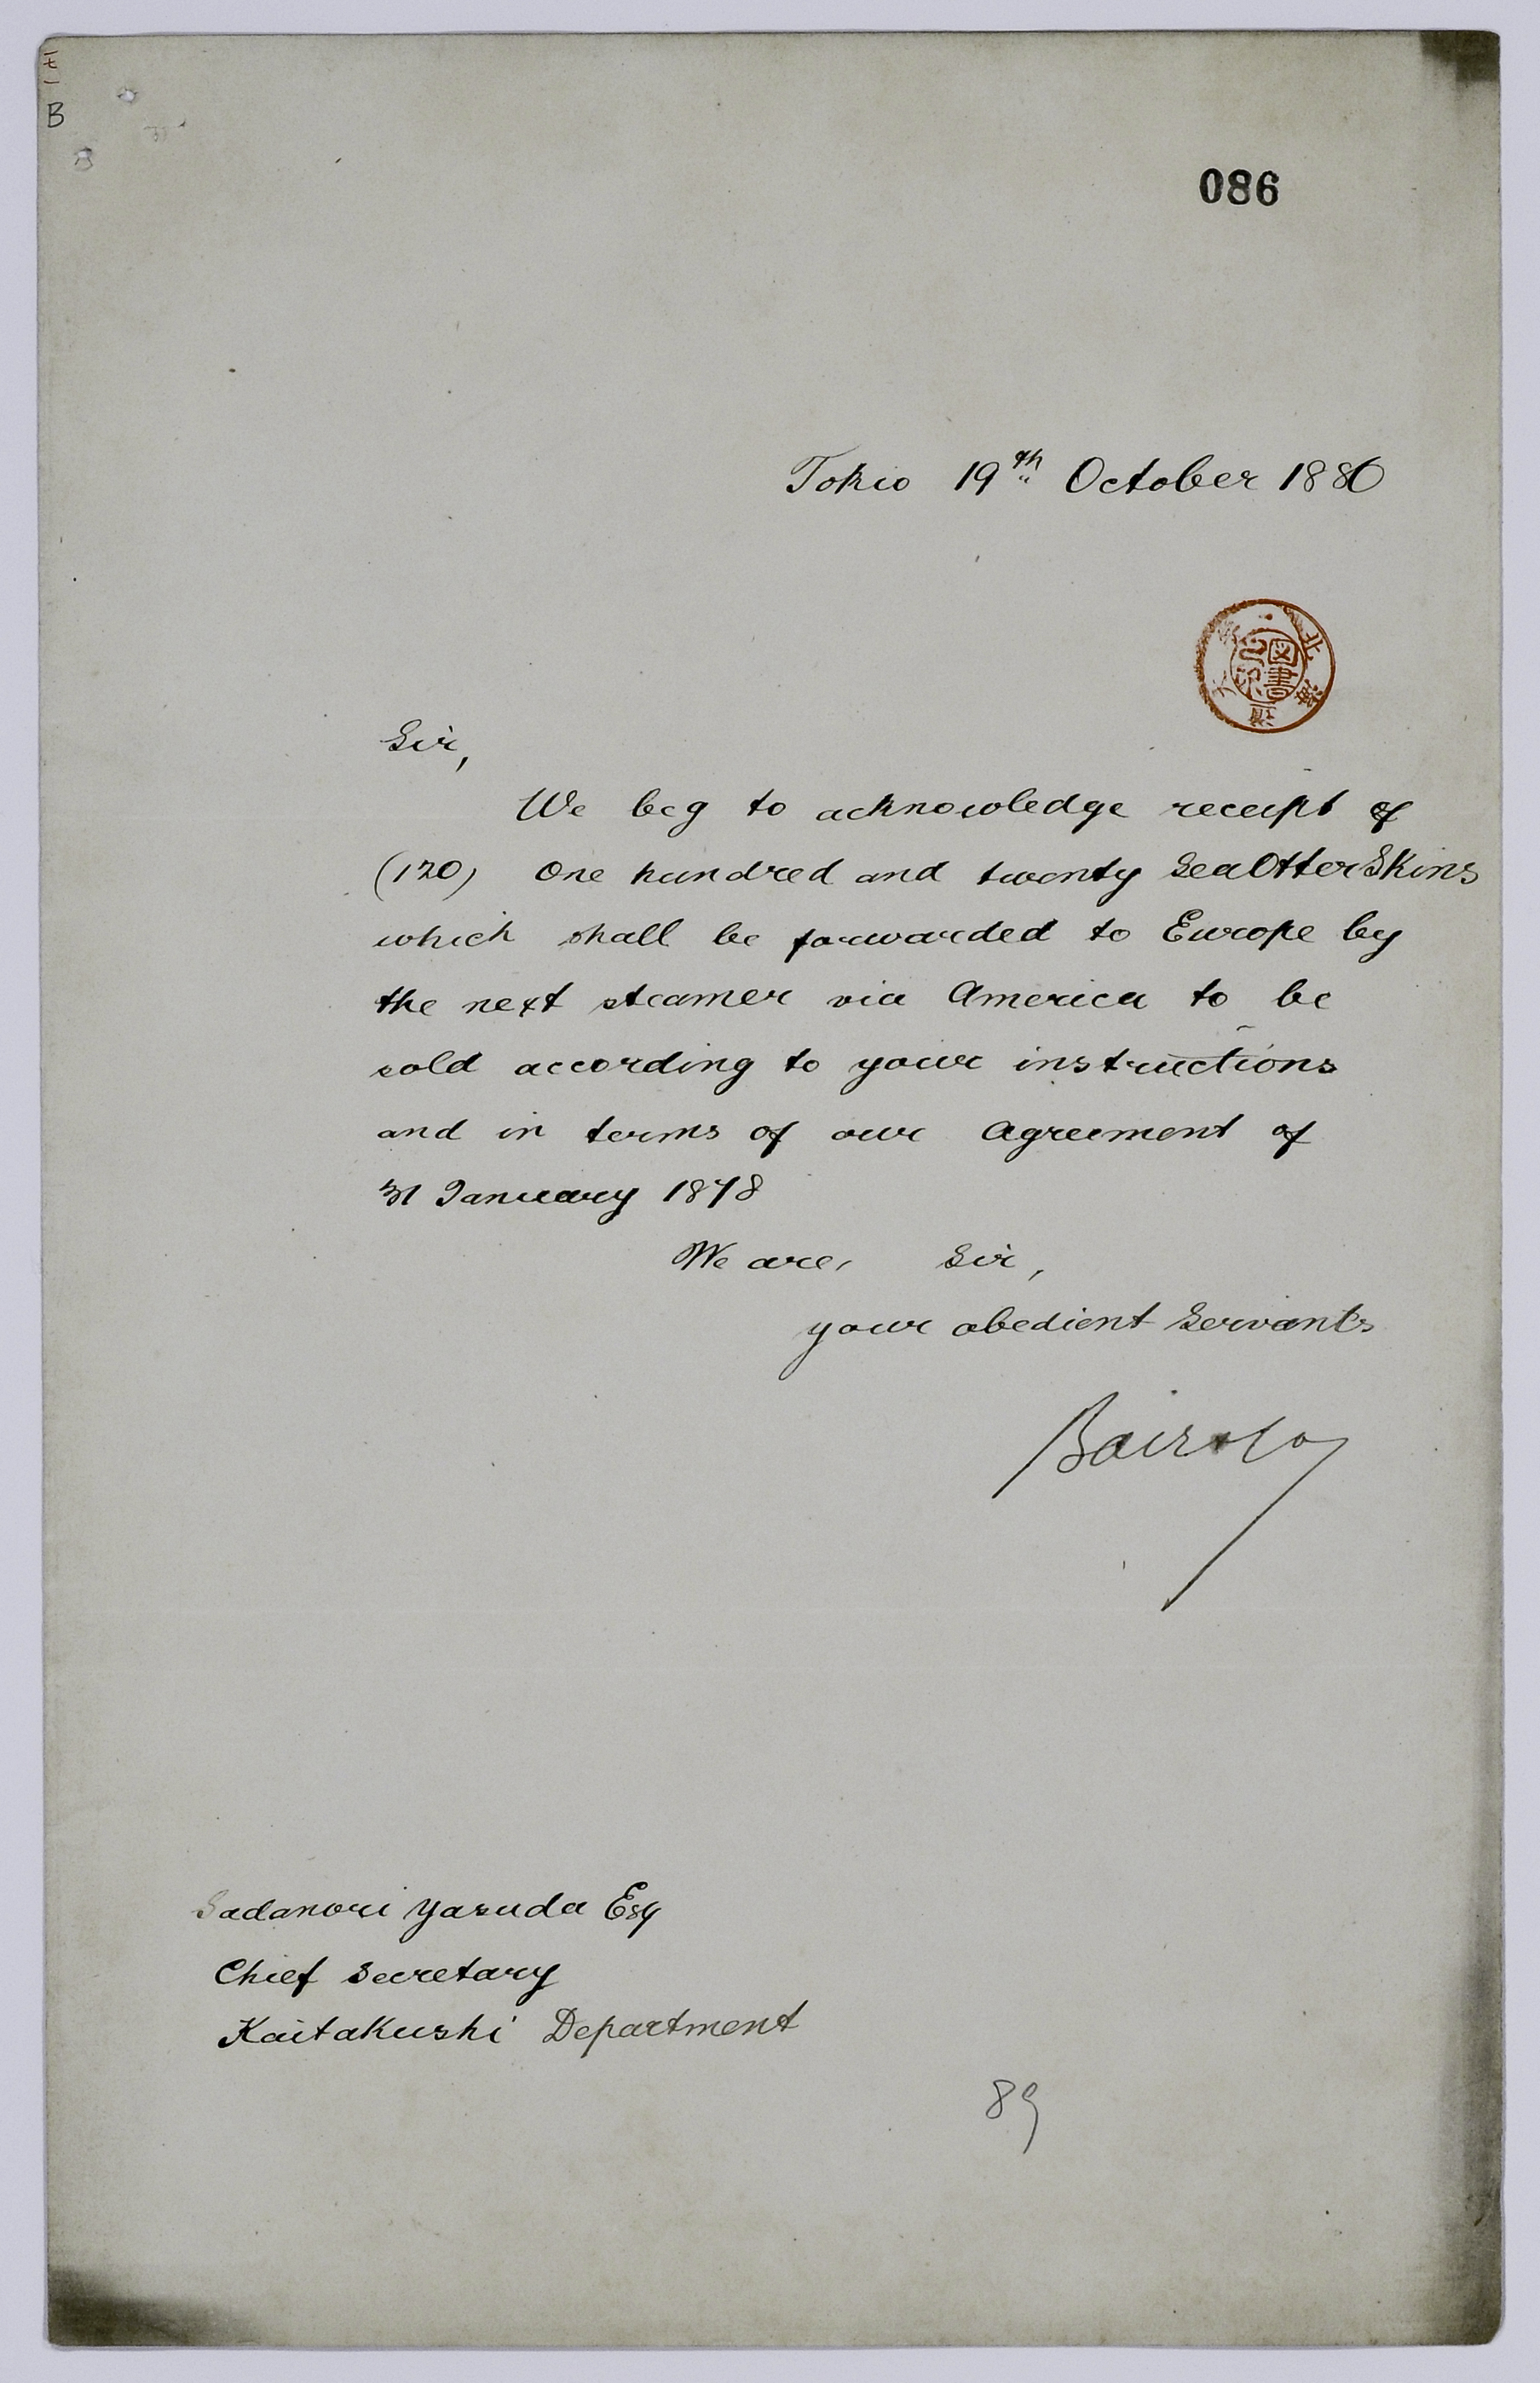 B
086
Tokio 19th October 1880
北海
図書
Sir,
We beg to acknowledge receipt of
(120) One hundred and twenty Sea Otter Skins
which shall be forwarded to Europe by
the next steamer via America to be
sold according to your instructions
and in terms of our Agreement of
31 January 1878
We are, Sir,
your obedient Servants
Sadanori Yasuda Esq
Chief Secretary
Kaitakushi Department
89